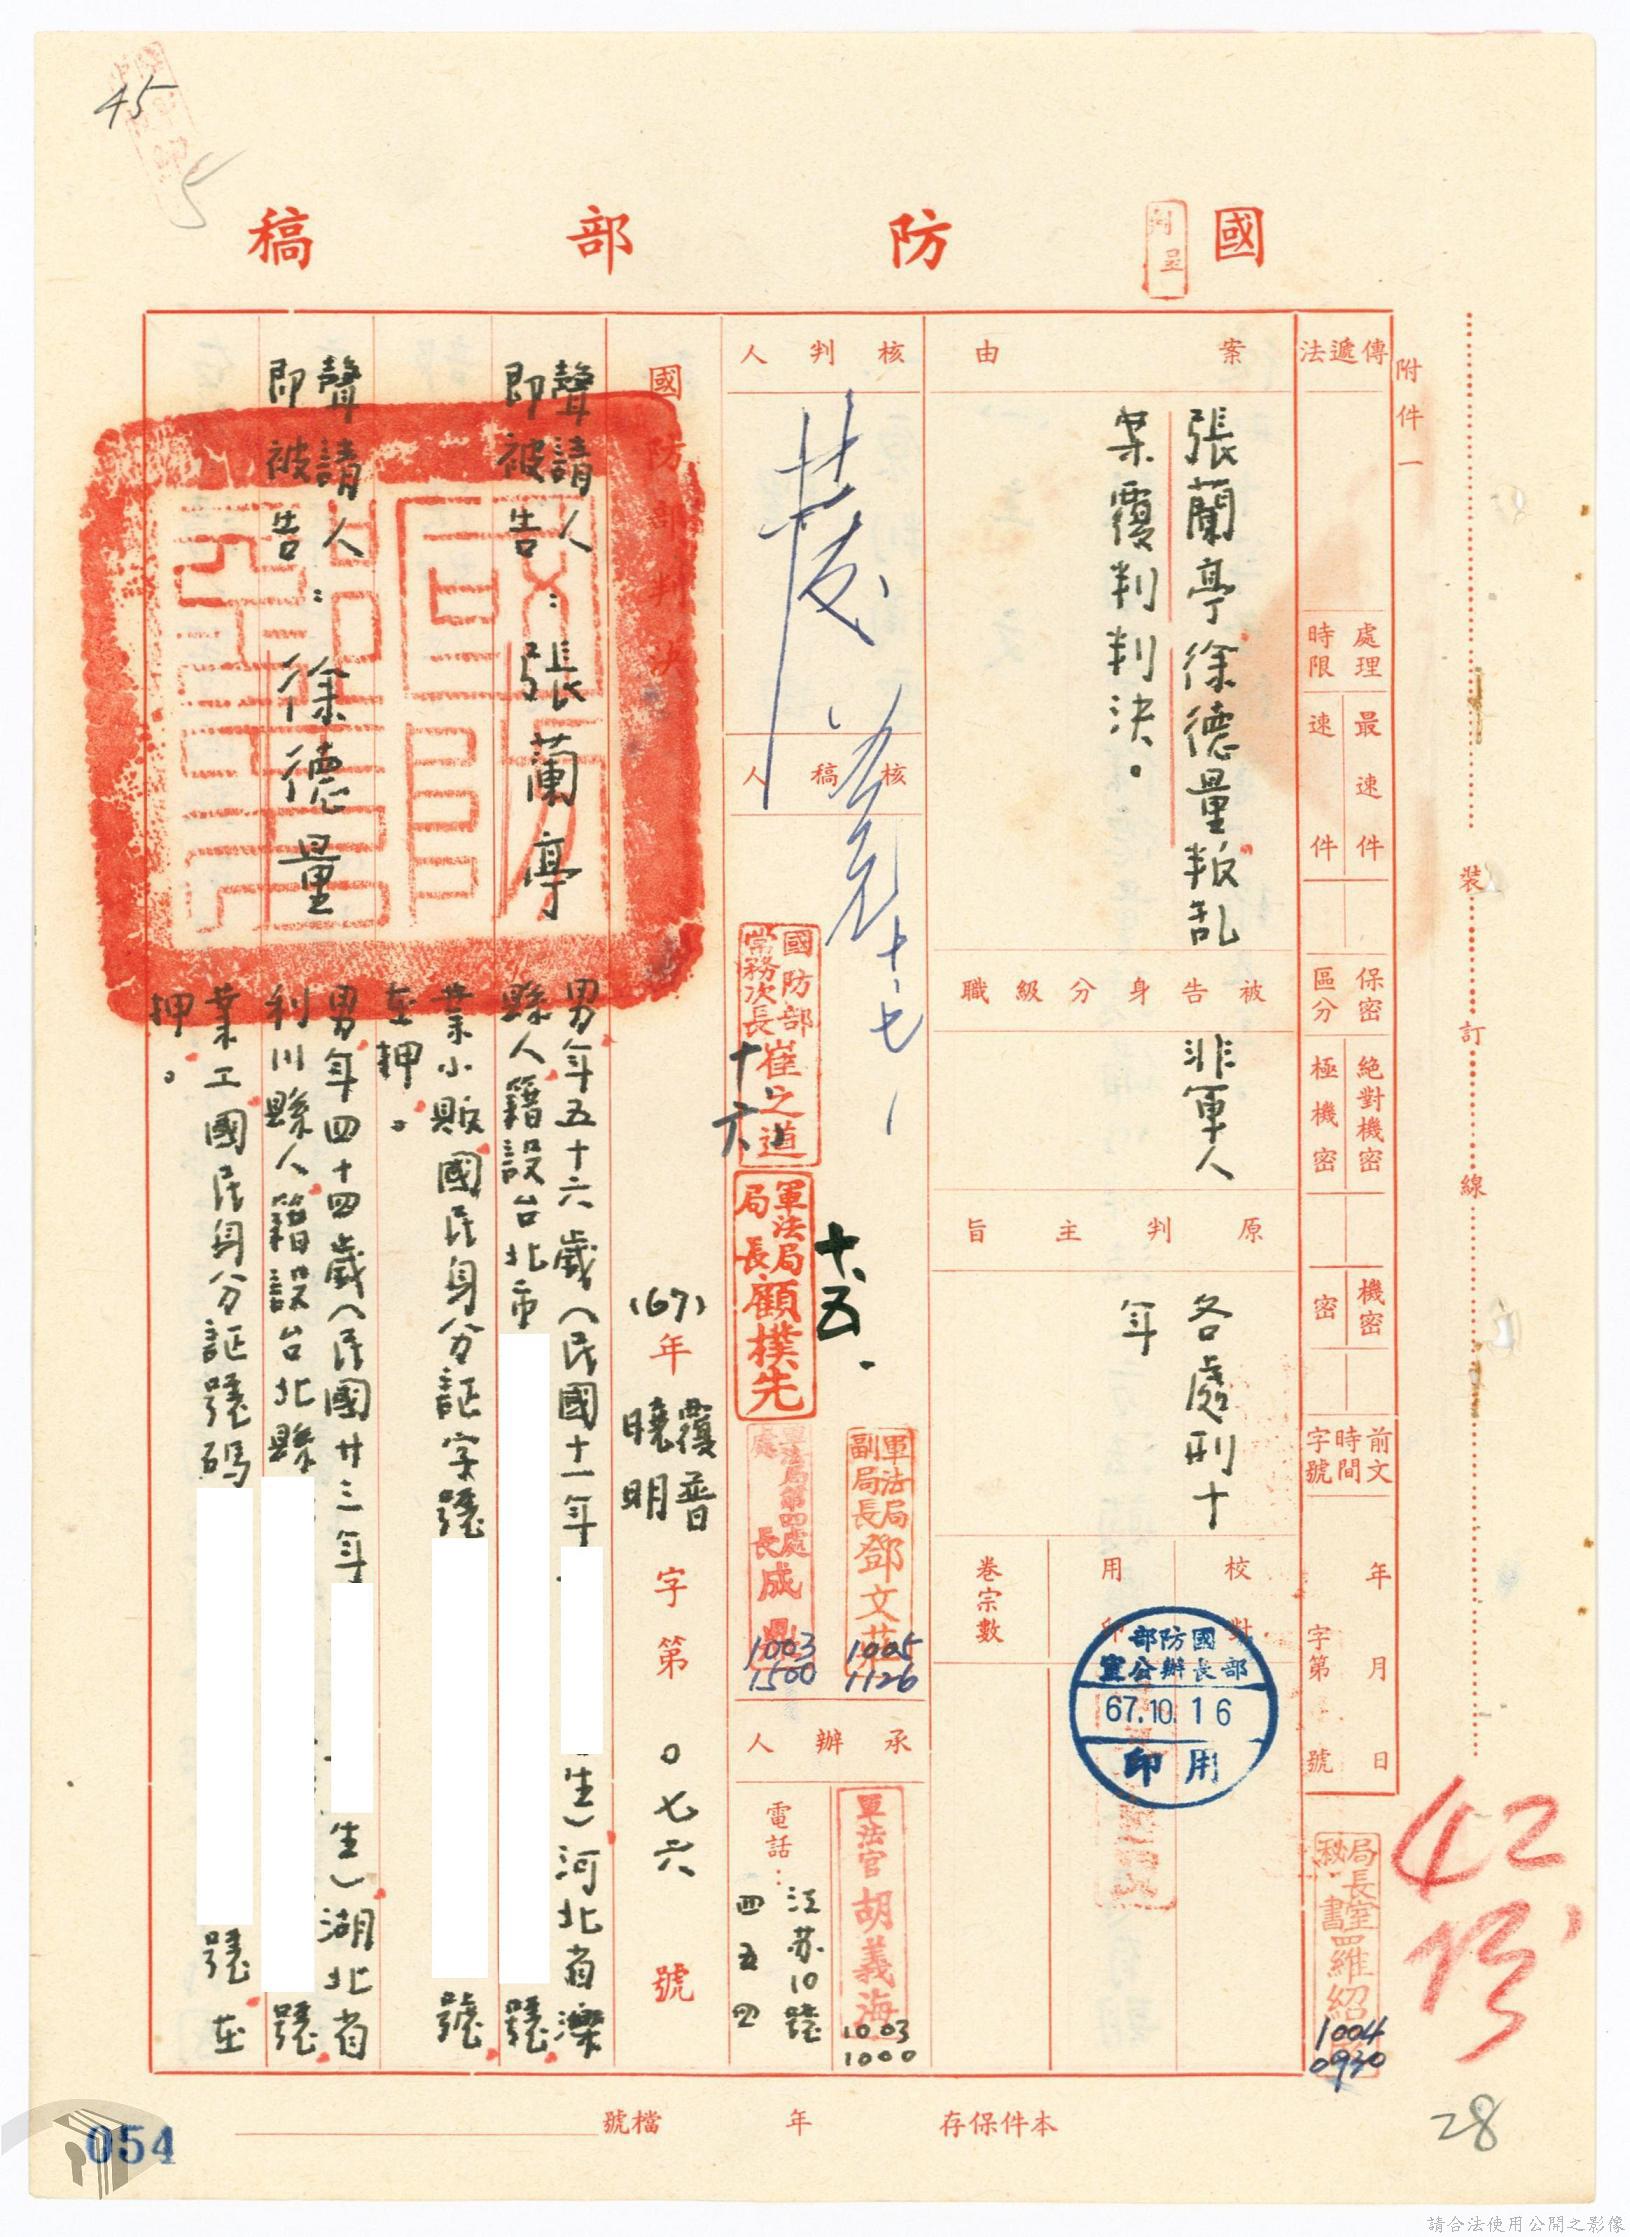 45
5
國防部稿
附件一
傳遞法
處理時限
最速件
速件
保密區分
絕對機密
極機密
機密
密
前文時間字號
年月日
字第號
裝訂線
案由
張蘭亭徐德量叛乱
案覆判判決。
被告身分級職
非軍人
原判主旨
各處刑十
年
校對
用印
卷宗數
國防部
部長辦公室
67.10.16
用印
核判人
核稿人
十七
國防部常務次長崔之道
十六
軍法局局長顧樸先
十、五.
軍法局副局長鄧文
1005
1126
軍法局第四處處長成鼎
1003
1500
承辦人
軍法官胡義海
1003
1000
電話：江苏10號
四五四
局長室秘書羅紹
1004
0930
42
28
國防部判決
(67)年覆普曉明字第〇七六號
聲請人
即被告：張蘭亭
男年五十六歲（民國十一年
生）河北省灤
縣人籍設台北市
號
業小販國民身分証字號
號
在押。
聲請人
即被告：徐德量
男年四十四歲（民國廿三年
生）湖北省
利川縣人籍設台北縣
號
業工國民身分証號碼
號在
押。
本件保存年檔號
054
請合法使用公開之影像